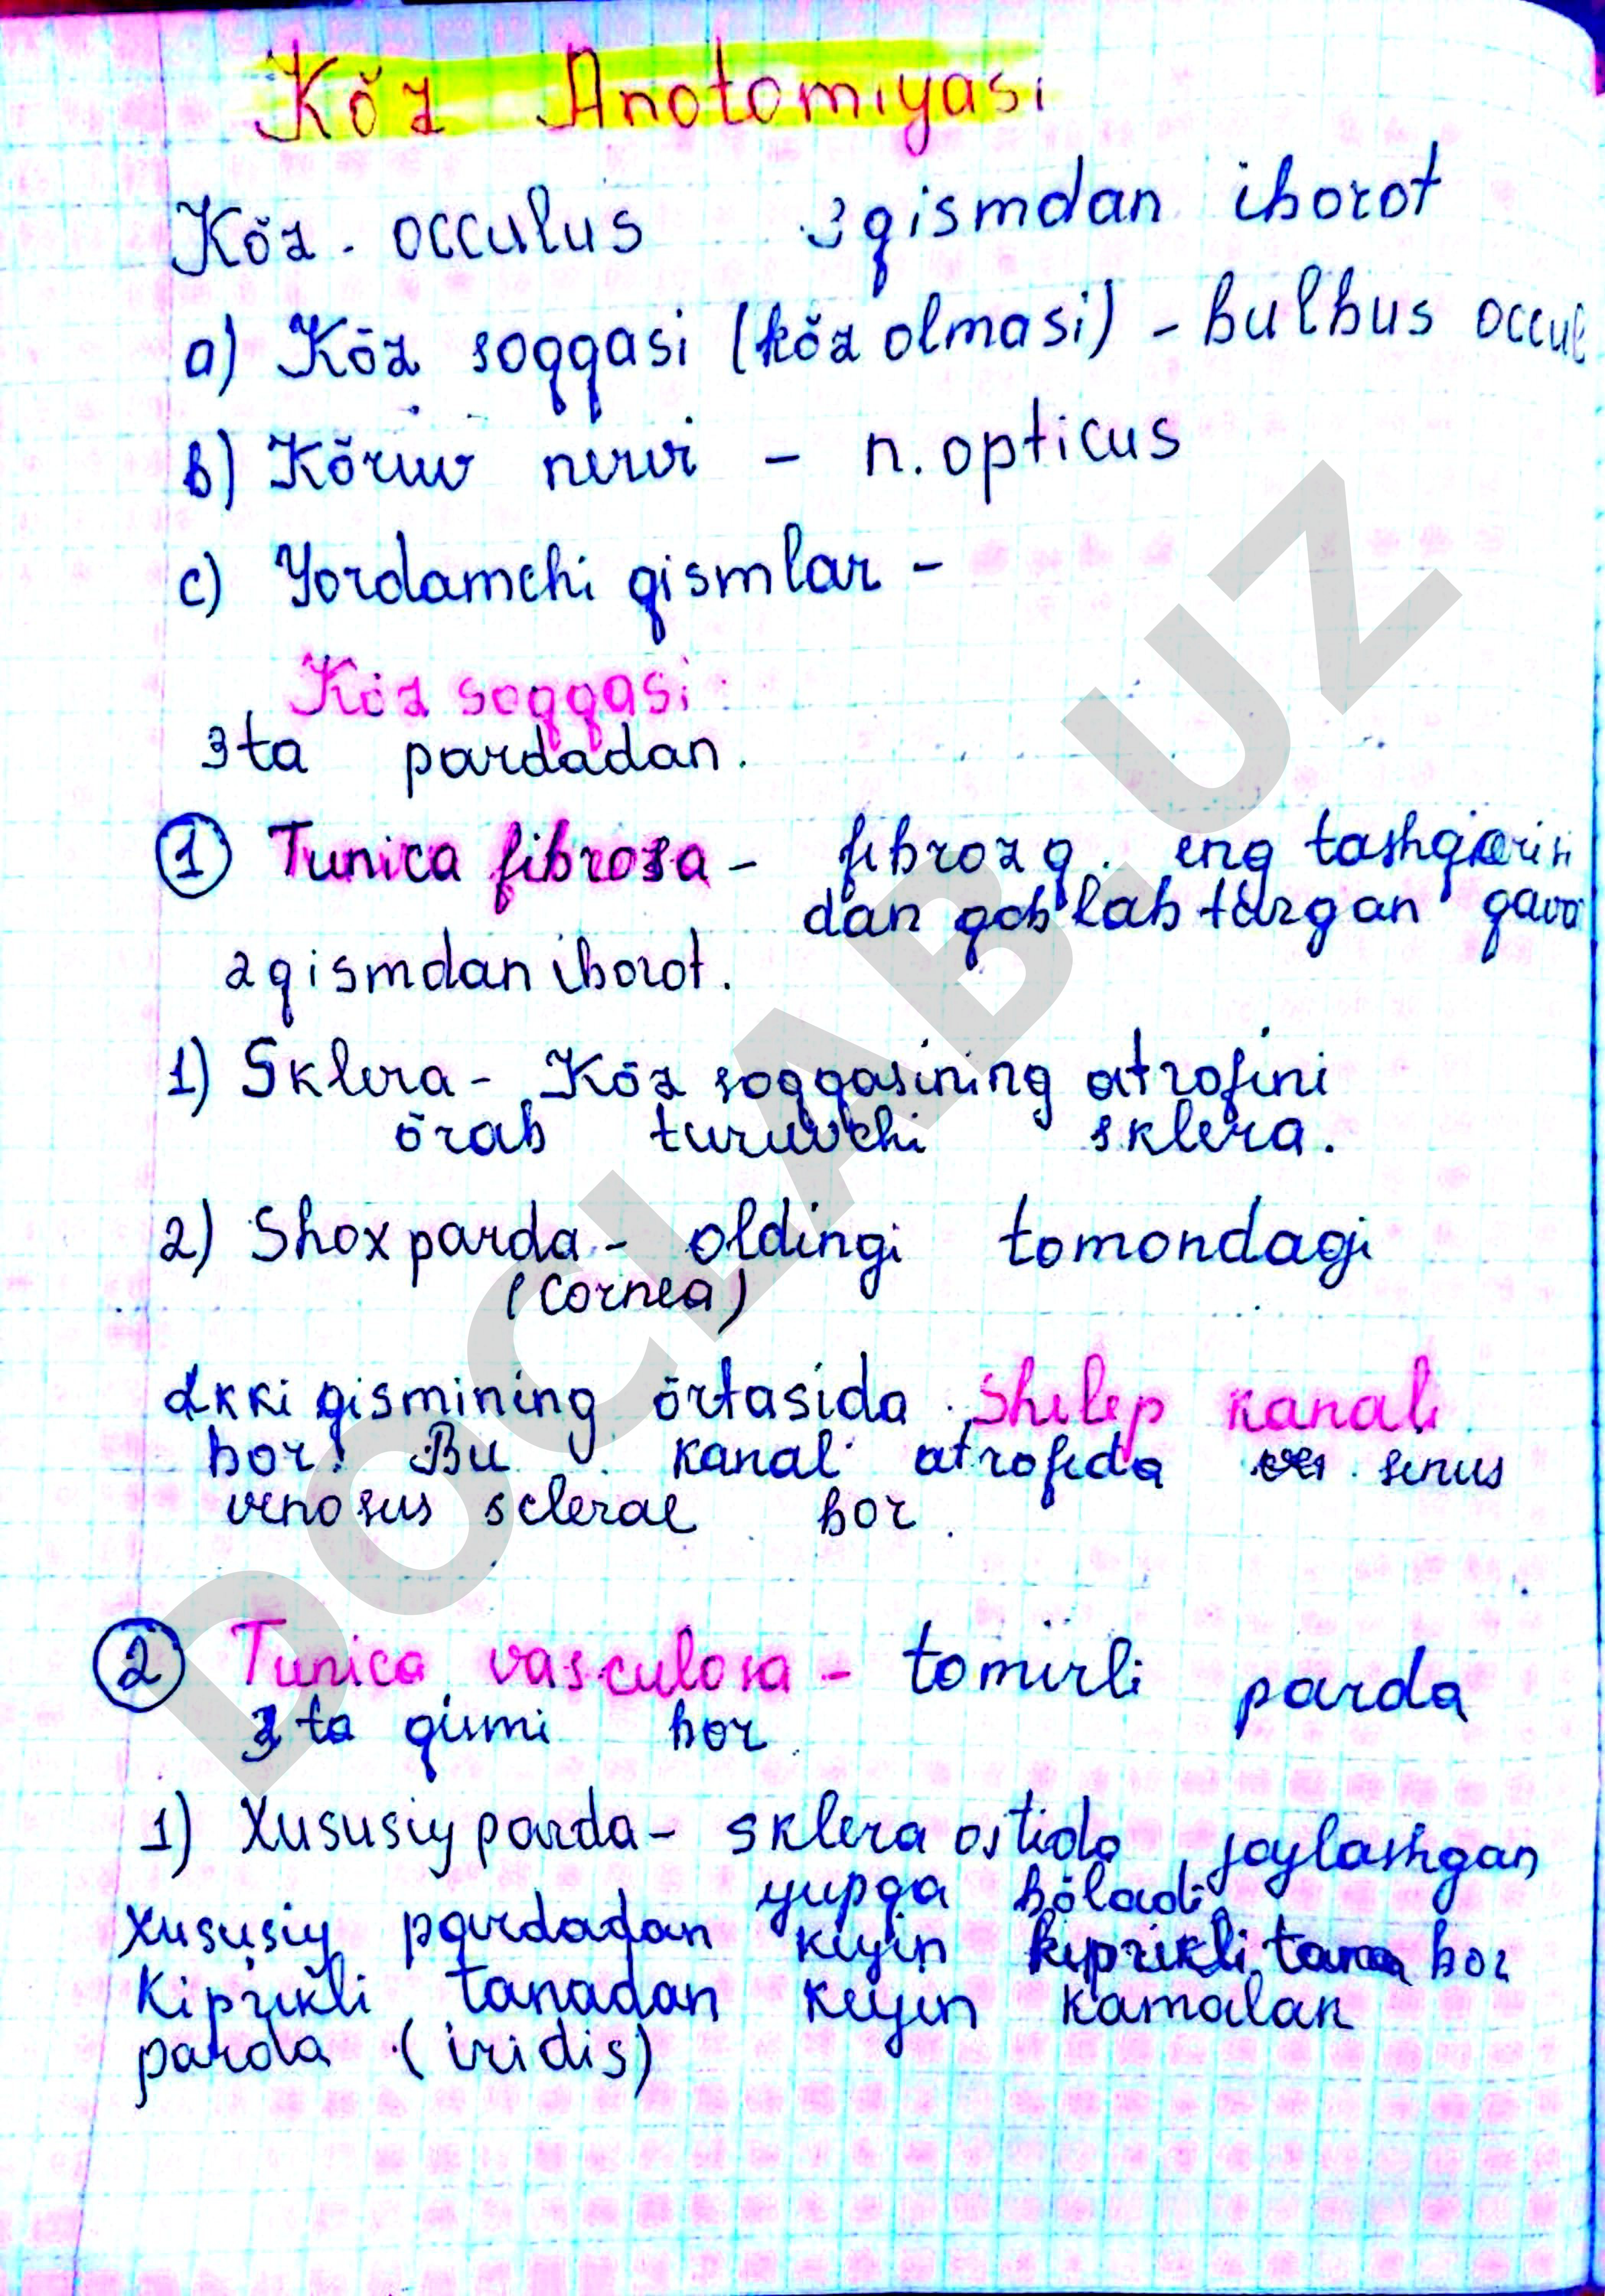 Kŏz Anotomiyasi
Kŏz - occulus 3 qismdan iborot
a) Kŏz soqqasi (kŏz olmasi) - bulbus occul
b) Kŏruv nervi - n. opticus
c) Yordamchi qismlar -
Kŏz soqqasi:
3 ta pardadan.
1 Tunica fibroza - fibroz q. eng tashqarisi
dan qoblab turgan qava
2 qismdan iborot.
1) Sklera - Kŏz soqqasining atrofini
ŏrab turuvchi sklera.
2) Shox parda - oldingi tomondagi
(Cornea)
Ikki qismining ŏrtasida Shlep kanali
bor. Bu kanal atrofida sinus
venosus sclerae bor.
2 Tunica vasculosa - tomirli parda
3 ta qismi bor.
1) Xususiy parda - sklera ostida joylashgan
yupqa bŏladi
Xususiy pardadan keyin kiprikli tana bor
Kiprikli tanadan keyin kamalak
parda (iridis)
DOCLAB UZ